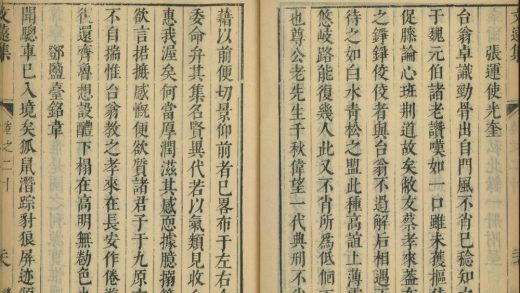 張運使光奎
台翁卓識勁骨出自門風不肖已稔知之
于魏元伯諸老讚嘆如一口雖未獲摳
促膝論心班荆道故矣敝友蔡孝來蓋在
之錚錚佼佼者與台翁不過解后相遇
待之如白水青松之盟此種高誼上薄雲
悠岐路能復幾人此又不肖所爲低佪
也尊公老先生千秋偉望一代典刑不肖
藉以前便切景仰前者已畧布于左右
委命弁其集名賢異代若以氣類見收
惠我渥矣何當厚潤滋其感恧據臆搦
欲言捃摭感慨便欲質諸君子于九原
不自揣惟台翁教之孝來在長安作倦游
往還齊魯想設醴下榻在高明無勌色
鄧鹽臺銘韋
聞驄車已入境矣狐鼠潛踪豺狼屏迹
文遠集
卷之二十